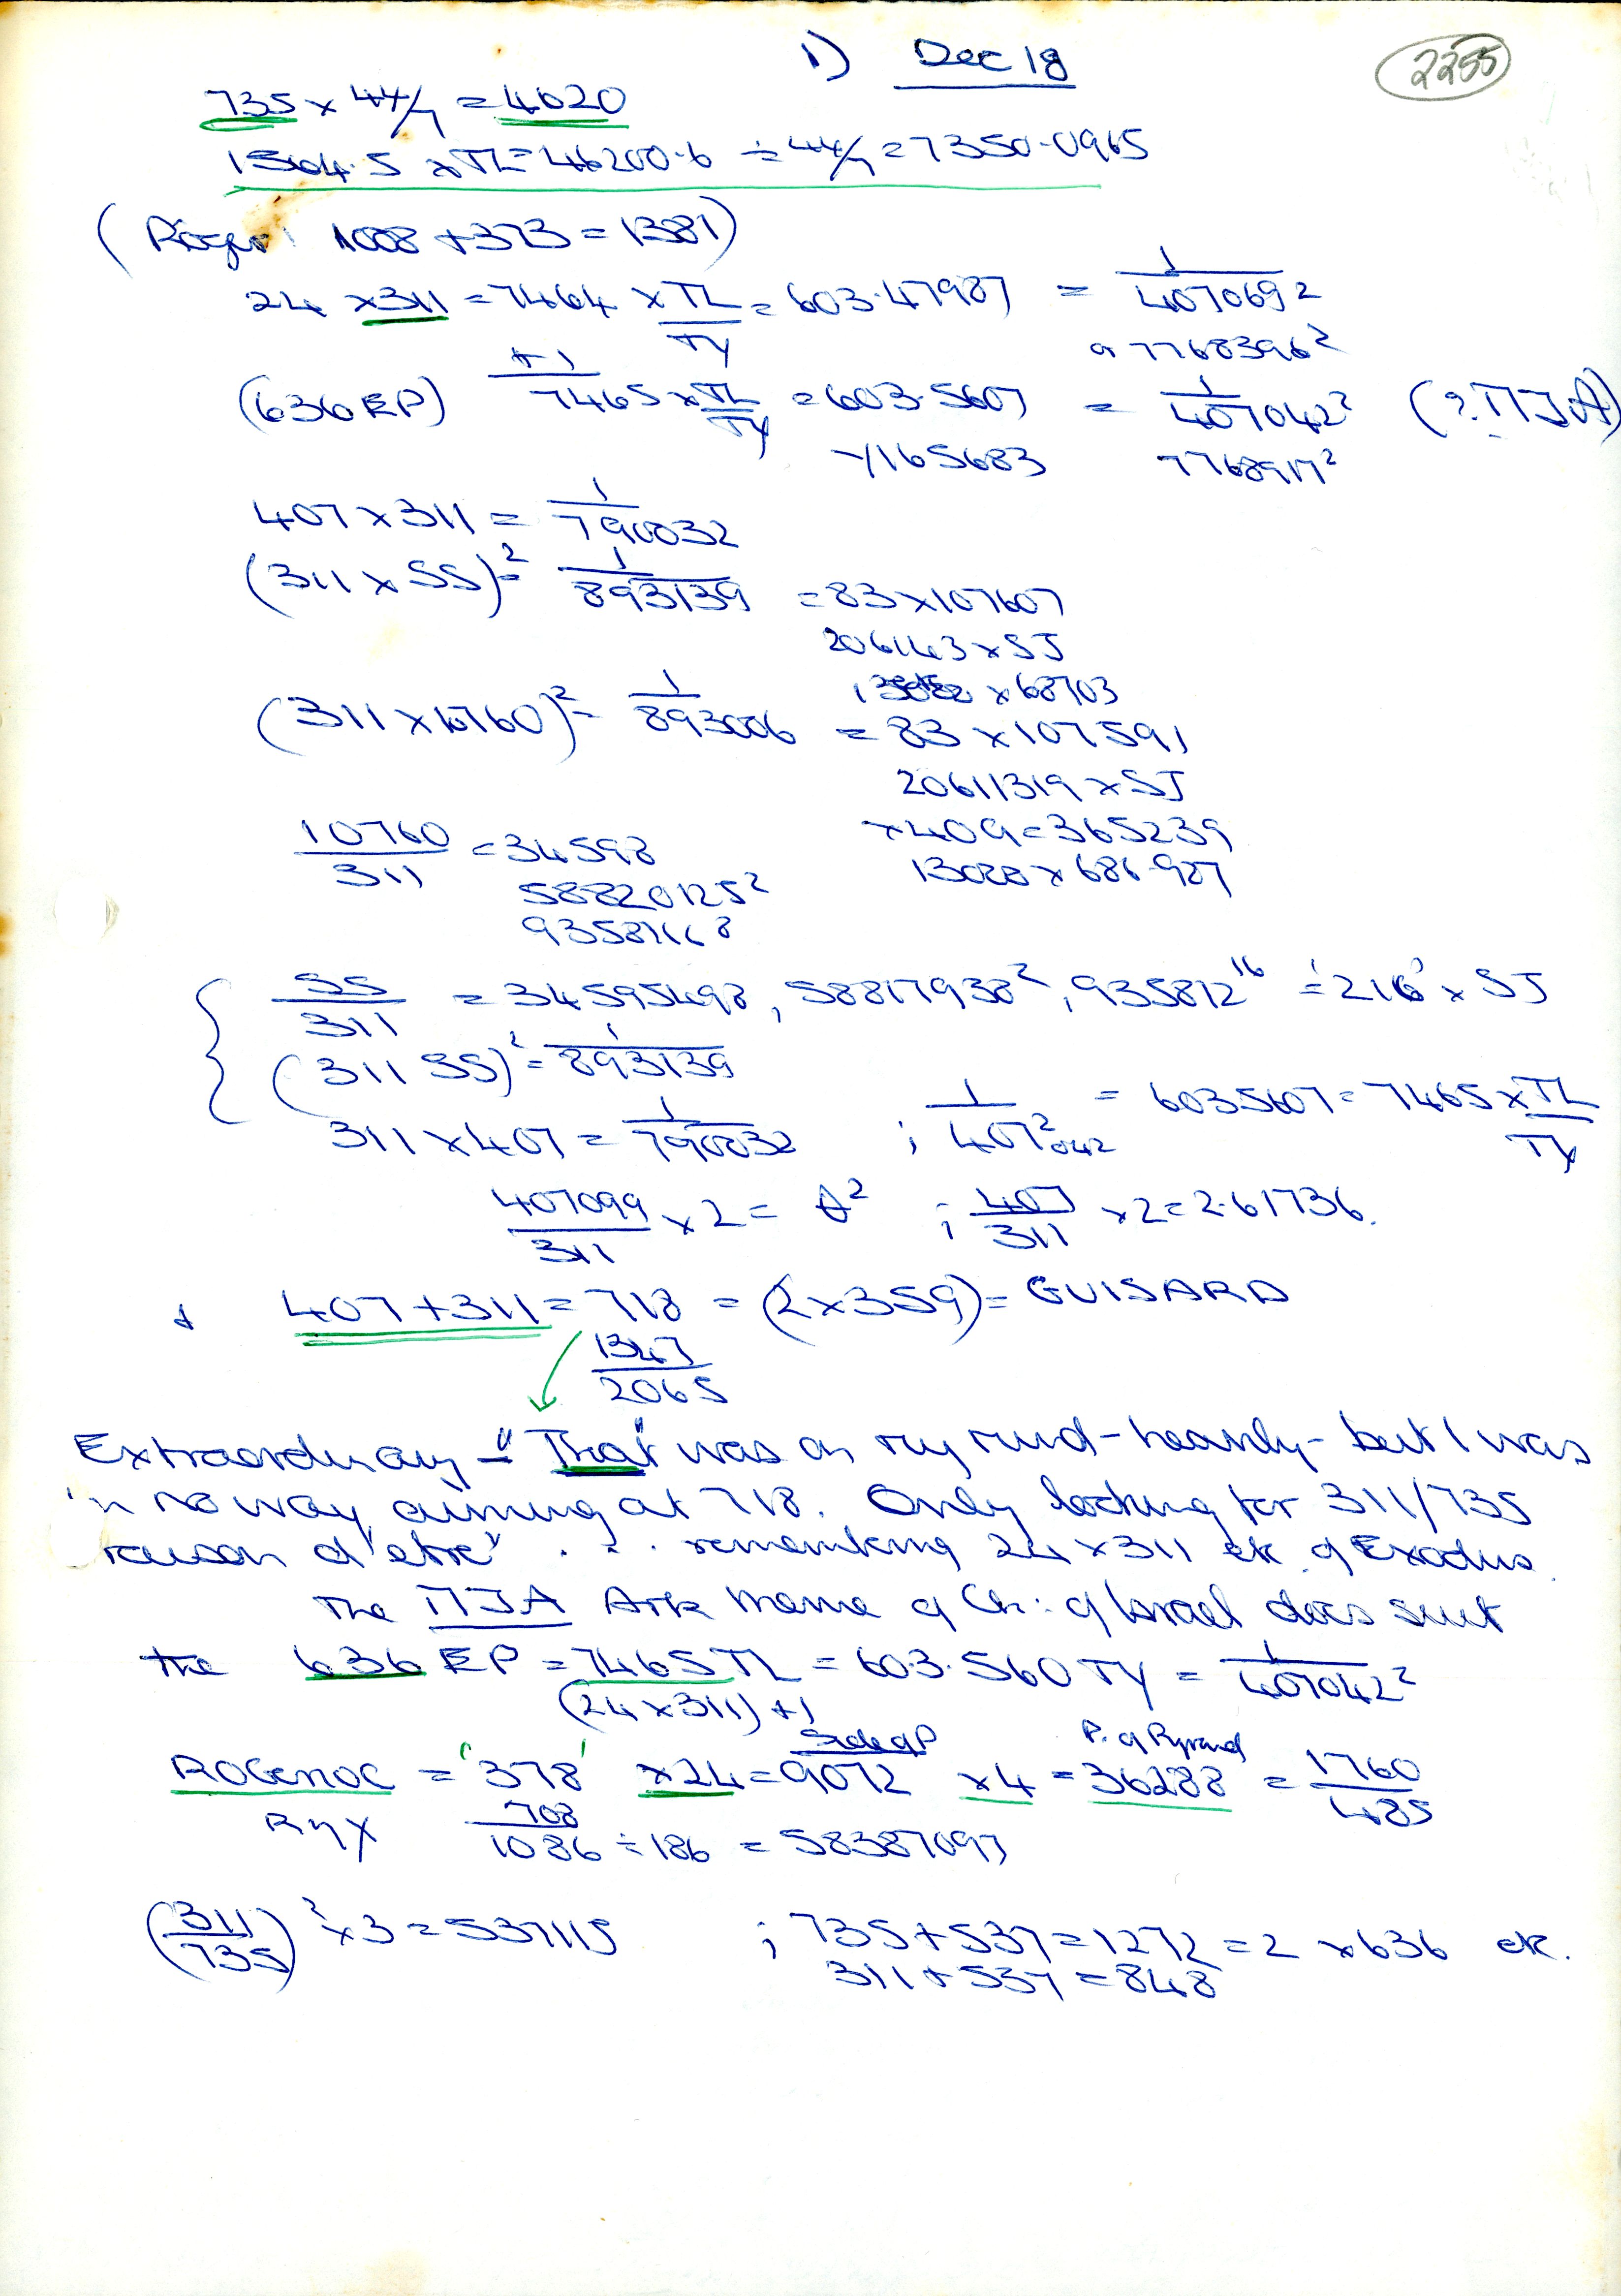 1) Dec 18
2255
735 x 44/7 = 4620
1564.5 x TL = 46200.6 ÷ 44/7 = 7350.0965
(Roger 1008 + 373 = 1381)
24 x 311 = 7464 x TL/TY = 603.47987 = 1/407069²
or 7768396²
(636 EP) +1 7465 x TL/TY = 603.5607 = 1/407042² (? ΠJA)
-/165683 7768917²
407 x 311 = 1/790032
(311 x SS)² = 1/893139 = 83 x 107607
206143 x SJ
x 68703
(311 x 10760)² = 1/893006 = 83 x 107591
20611319 x SJ
x 409 = 365239
13000 x 686.987
10760/311 = 34598
58820125²
9358116 8
SS/311 = 34595498, 58817938², 935812^16 = 216' x SJ
(311 SS)² = 1/893139
311 x 407 = 1/790032 ; 1/407042² = 603567 = 7465 x TL/TY
407099/311 x 2 = θ² ; 407/311 x 2 = 2.61736.
& 407 + 311 = 718 = (2 x 359) = GUISARD
1347
2065
Extraordinary - "That" was on my mind - heavenly - but I was
in no way aiming at 718. Only looking for 311/735
'raison d'etre' . . . remembering 24 x 311 etc of Exodus.
The ΠJA Ark Meme of Ch: of Israel does suit
the 636 EP = 7465 TL = 603.560 TY = 1/407042²
(24 x 311) +1
Side of P P. of Pyramid
ROGENOC = '378' x 24 = 9072 x 4 = 36288 = 1760/485
708
1086 ÷ 186 = 58387097
(311/735)² x 3 = 537115 ; 735 + 537 = 1272 = 2 x 636 etc.
311 + 537 = 848